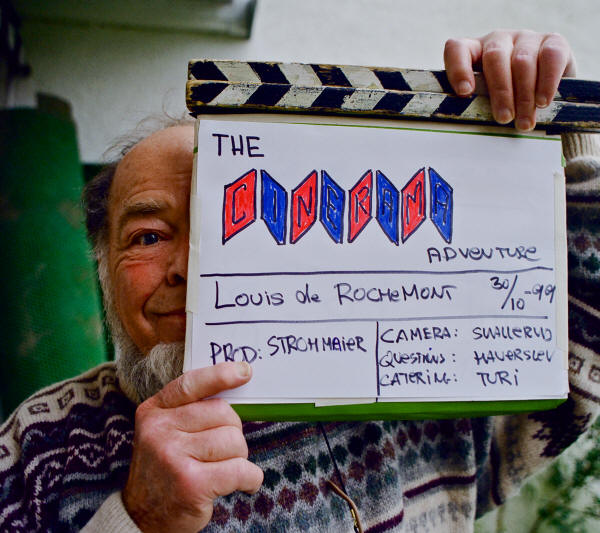 THE
CINERAMA
ADVENTURE
Louis de RocheMonT 30/10-99
PROD: STROHMAIER
CAMERA:
QUESTIONS: HAVERSLEV
CATERING: TURI